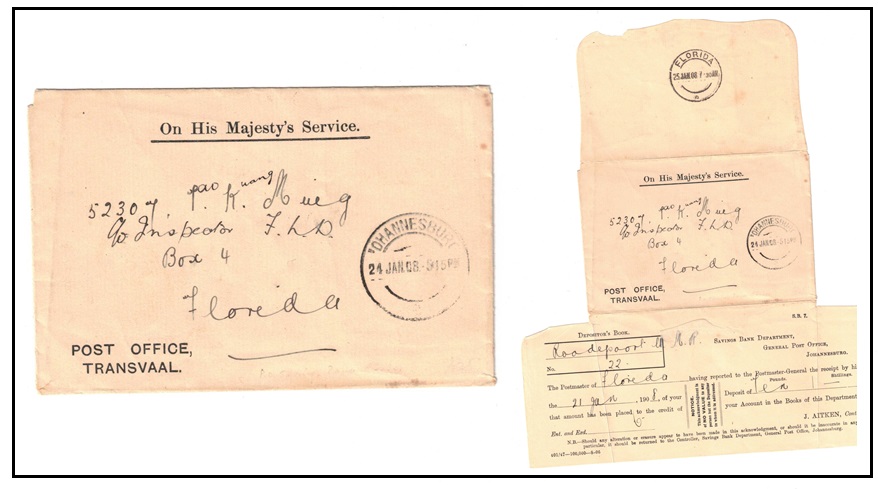 On His Majesty's Service.
52307. P. K. Mieg
pao uang
c/o Inspector F.L.D.
Box 4
Florida
POST OFFICE,
TRANSVAAL.
JOHANNESBURG
24 JAN.08.-915PM
FLORIDA
25 JAN.08.
On His Majesty's Service.
52307. P. K. Mieg
pao uang
c/o Inspector F.L.D.
Box 4
Florida
POST OFFICE,
TRANSVAAL.
JOHANNESBURG
24 JAN.08-915PM
S.B. 7.
DEPOSITOR'S BOOK.
SAVINGS BANK DEPARTMENT,
GENERAL POST OFFICE,
JOHANNESBURG.
Roodepoort M.R.
No. 22
The Postmaster of Florida having reported to the Postmaster-General the receipt by hi
Pounds. Shillings.
Deposit of Ten —
the 21 Jan, 1908, of your
that amount has been placed to the credit of
your Account in the Books of this Department
NOTICE.
This acknowledgment is
of NO VALUE in any
J. AITKEN, Cont
Ent. and Exd.
N.B.—Should any alteration or erasure appear to have been made in this acknowledgment, or should it be inaccurate in any
particular, it should be returned to the Controller, Savings Bank Department, General Post Office, Johannesburg.